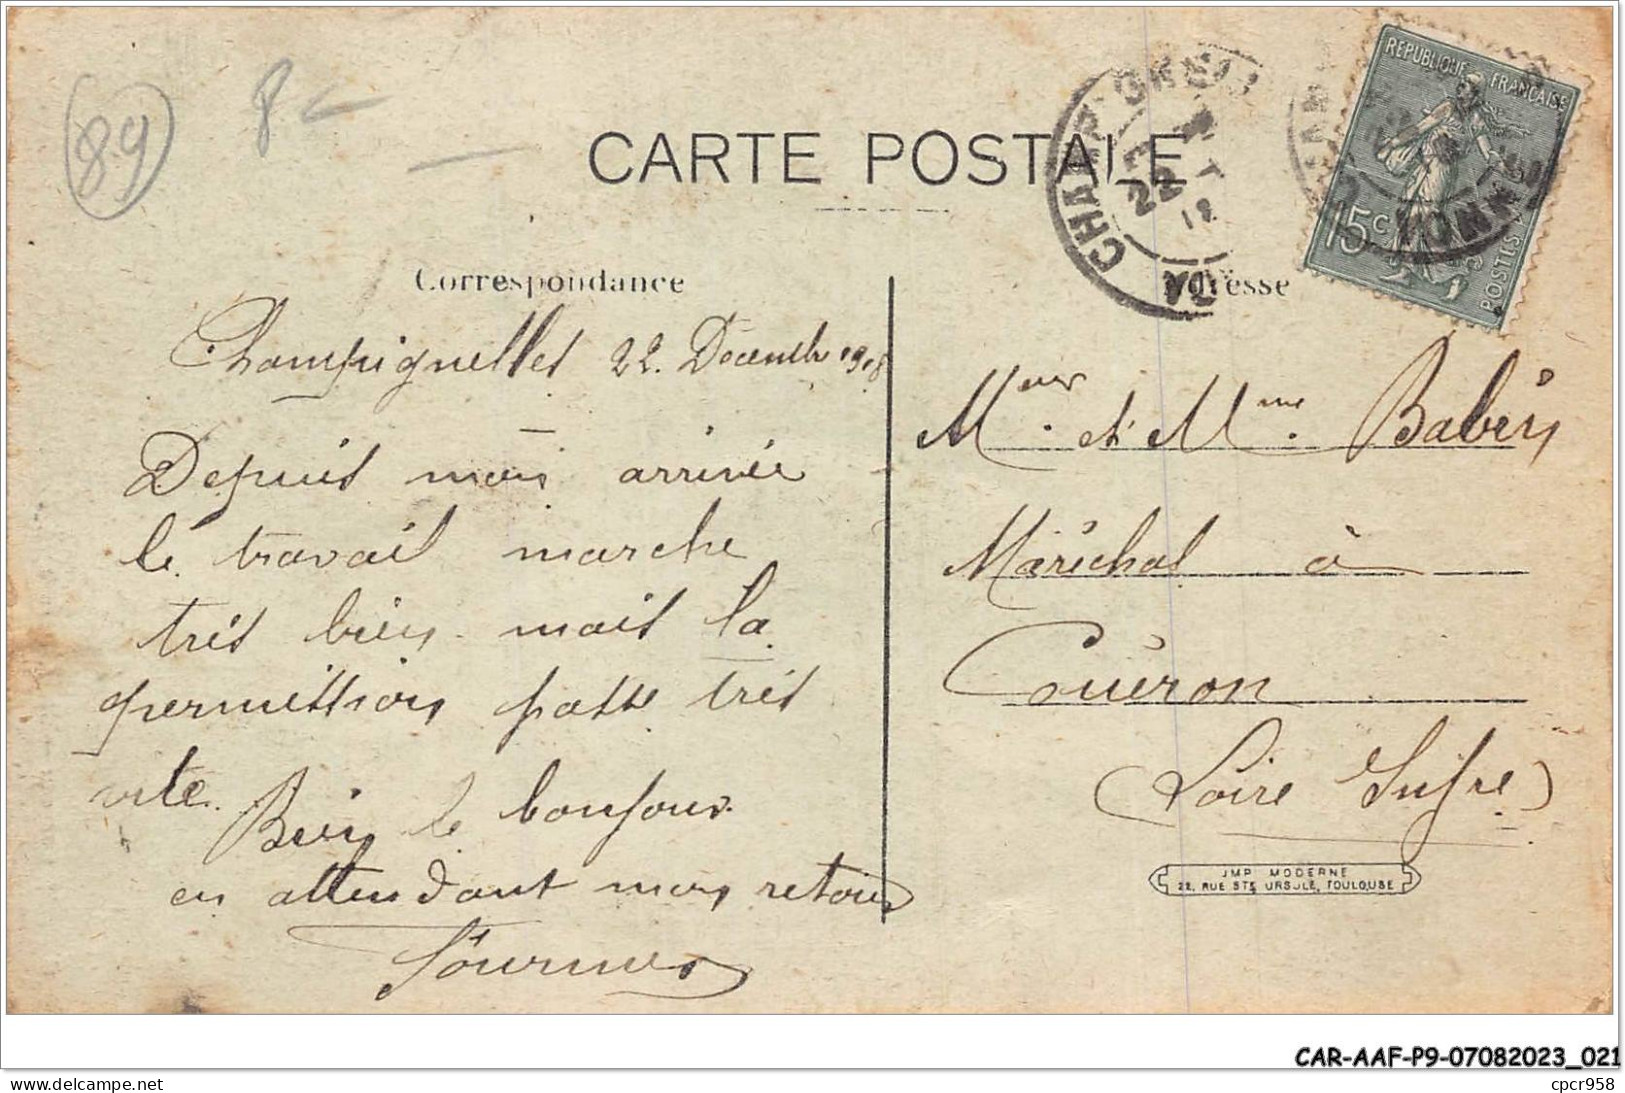 89
8
CARTE POSTALE
REPUBLIQUE FRANCAISE
15c
POSTES
22
YONNE
Correspondance
Adresse
Champignelles 22. Decembre 1918
Depuis mon arrivée
le travail marche
très bien mais la
permission passe très
vite.
Bien le bonjour
en attendant mon retour
Meur. et Mme. Babin
Maréchal à
Couëron
(Loire Infre)
JMP MODERNE
22, RUE STE URSULE, TOULOUSE
CAR-AAF-P9-07082023_021
www.delcampe.net
cpcr958